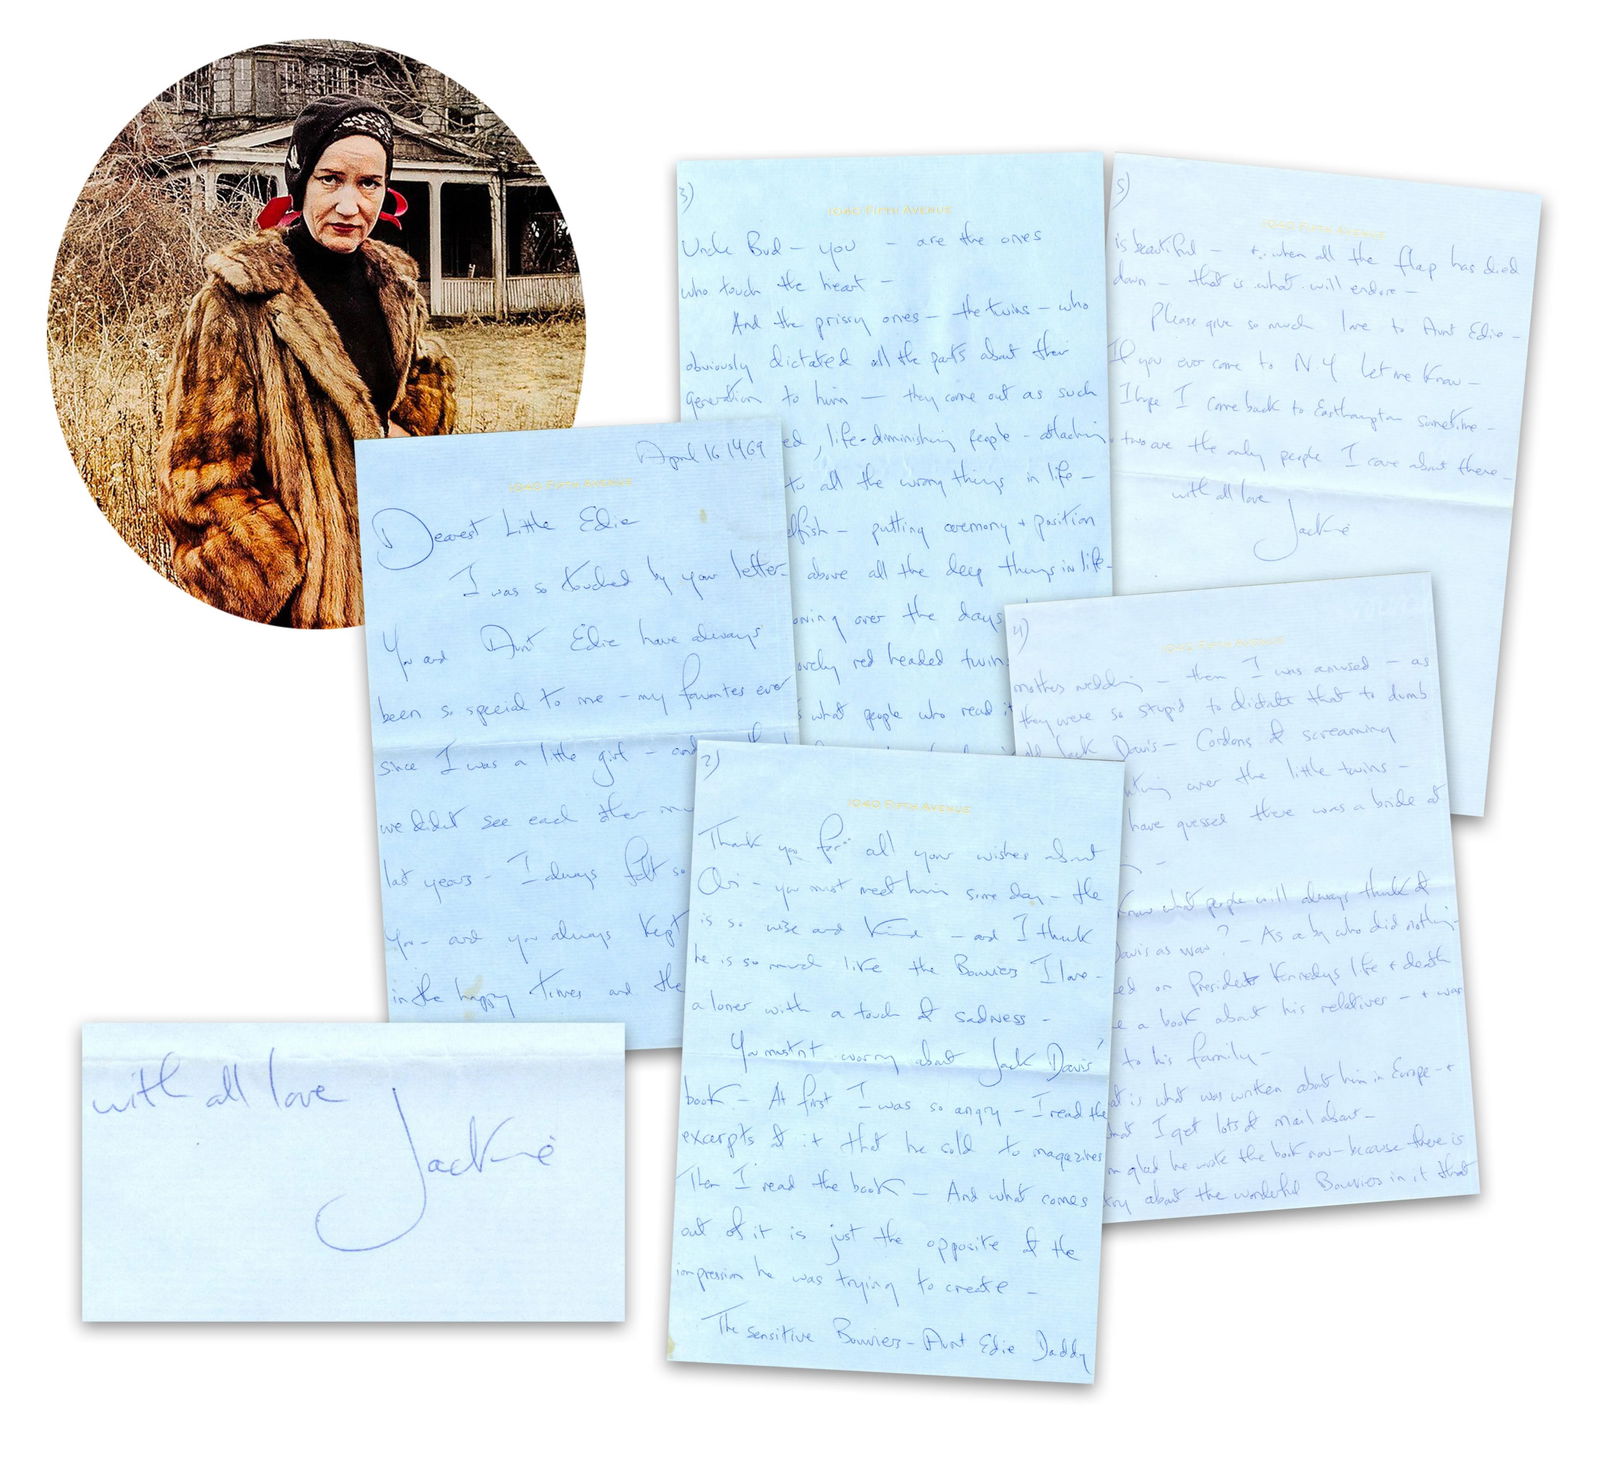 April 16 1969
1040 FIFTH AVENUE
Dearest Little Edie
I was so touched by your letter -
You and Aunt Edie have always
been so special to me - my favorites ever
since I was a little girl - and
we didn't see each other
last years - I always felt so
You - and you always kept
in the happy times and the
2)
1040 FIFTH AVENUE
Thank you for all your wishes about
Ari - you must meet him some day - He
is so wise and kind - and I think
he is so much like the Bouviers I love -
a loner with a touch of sadness -
You mustn't worry about Jack Davis'
book - At first I was so angry - I read the
excerpts of it that he sold to magazines
Then I read the book - And what comes
out of it is just the opposite of the
impression he was trying to create -
The sensitive Bouviers - Aunt Edie Daddy
3)
1040 FIFTH AVENUE
Uncle Bud - you - are the ones
who touch the heart -
And the prissy ones - the twins - who
obviously dictated all the parts about their
generation to him - they come out as such
ed, life-diminishing people - attaching
to all the wrong things in life -
elfish - putting ceremony + position
above all the deep things in life -
oning over the days
ovely red headed twin
what people who read it
4)
1040 FIFTH AVENUE
mothers wedding - then I was amused - as
they were so stupid to dictate that to dumb
Jack Davis - Cordons of screaming
over the little twins -
have guessed there was a bride at
know what people will always think of
Davis as was? - As a by who did nothing -
ed on President Kennedys life + death
e a book about his relatives - + was
to his family -
at is what was written about him in Europe - +
that I get lots of mail about -
m glad he wrote the book now - because there is
about the wonderful Bouviers in it that
5)
1040 FIFTH AVENUE
is beautiful - + when all the flap has died
down - that is what will endure -
Please give so much love to Aunt Edie -
If you ever come to N.Y let me know -
I hope I come back to Easthampton sometime -
two are the only people I care about there -
with all love
Jackie
with all love
Jackie